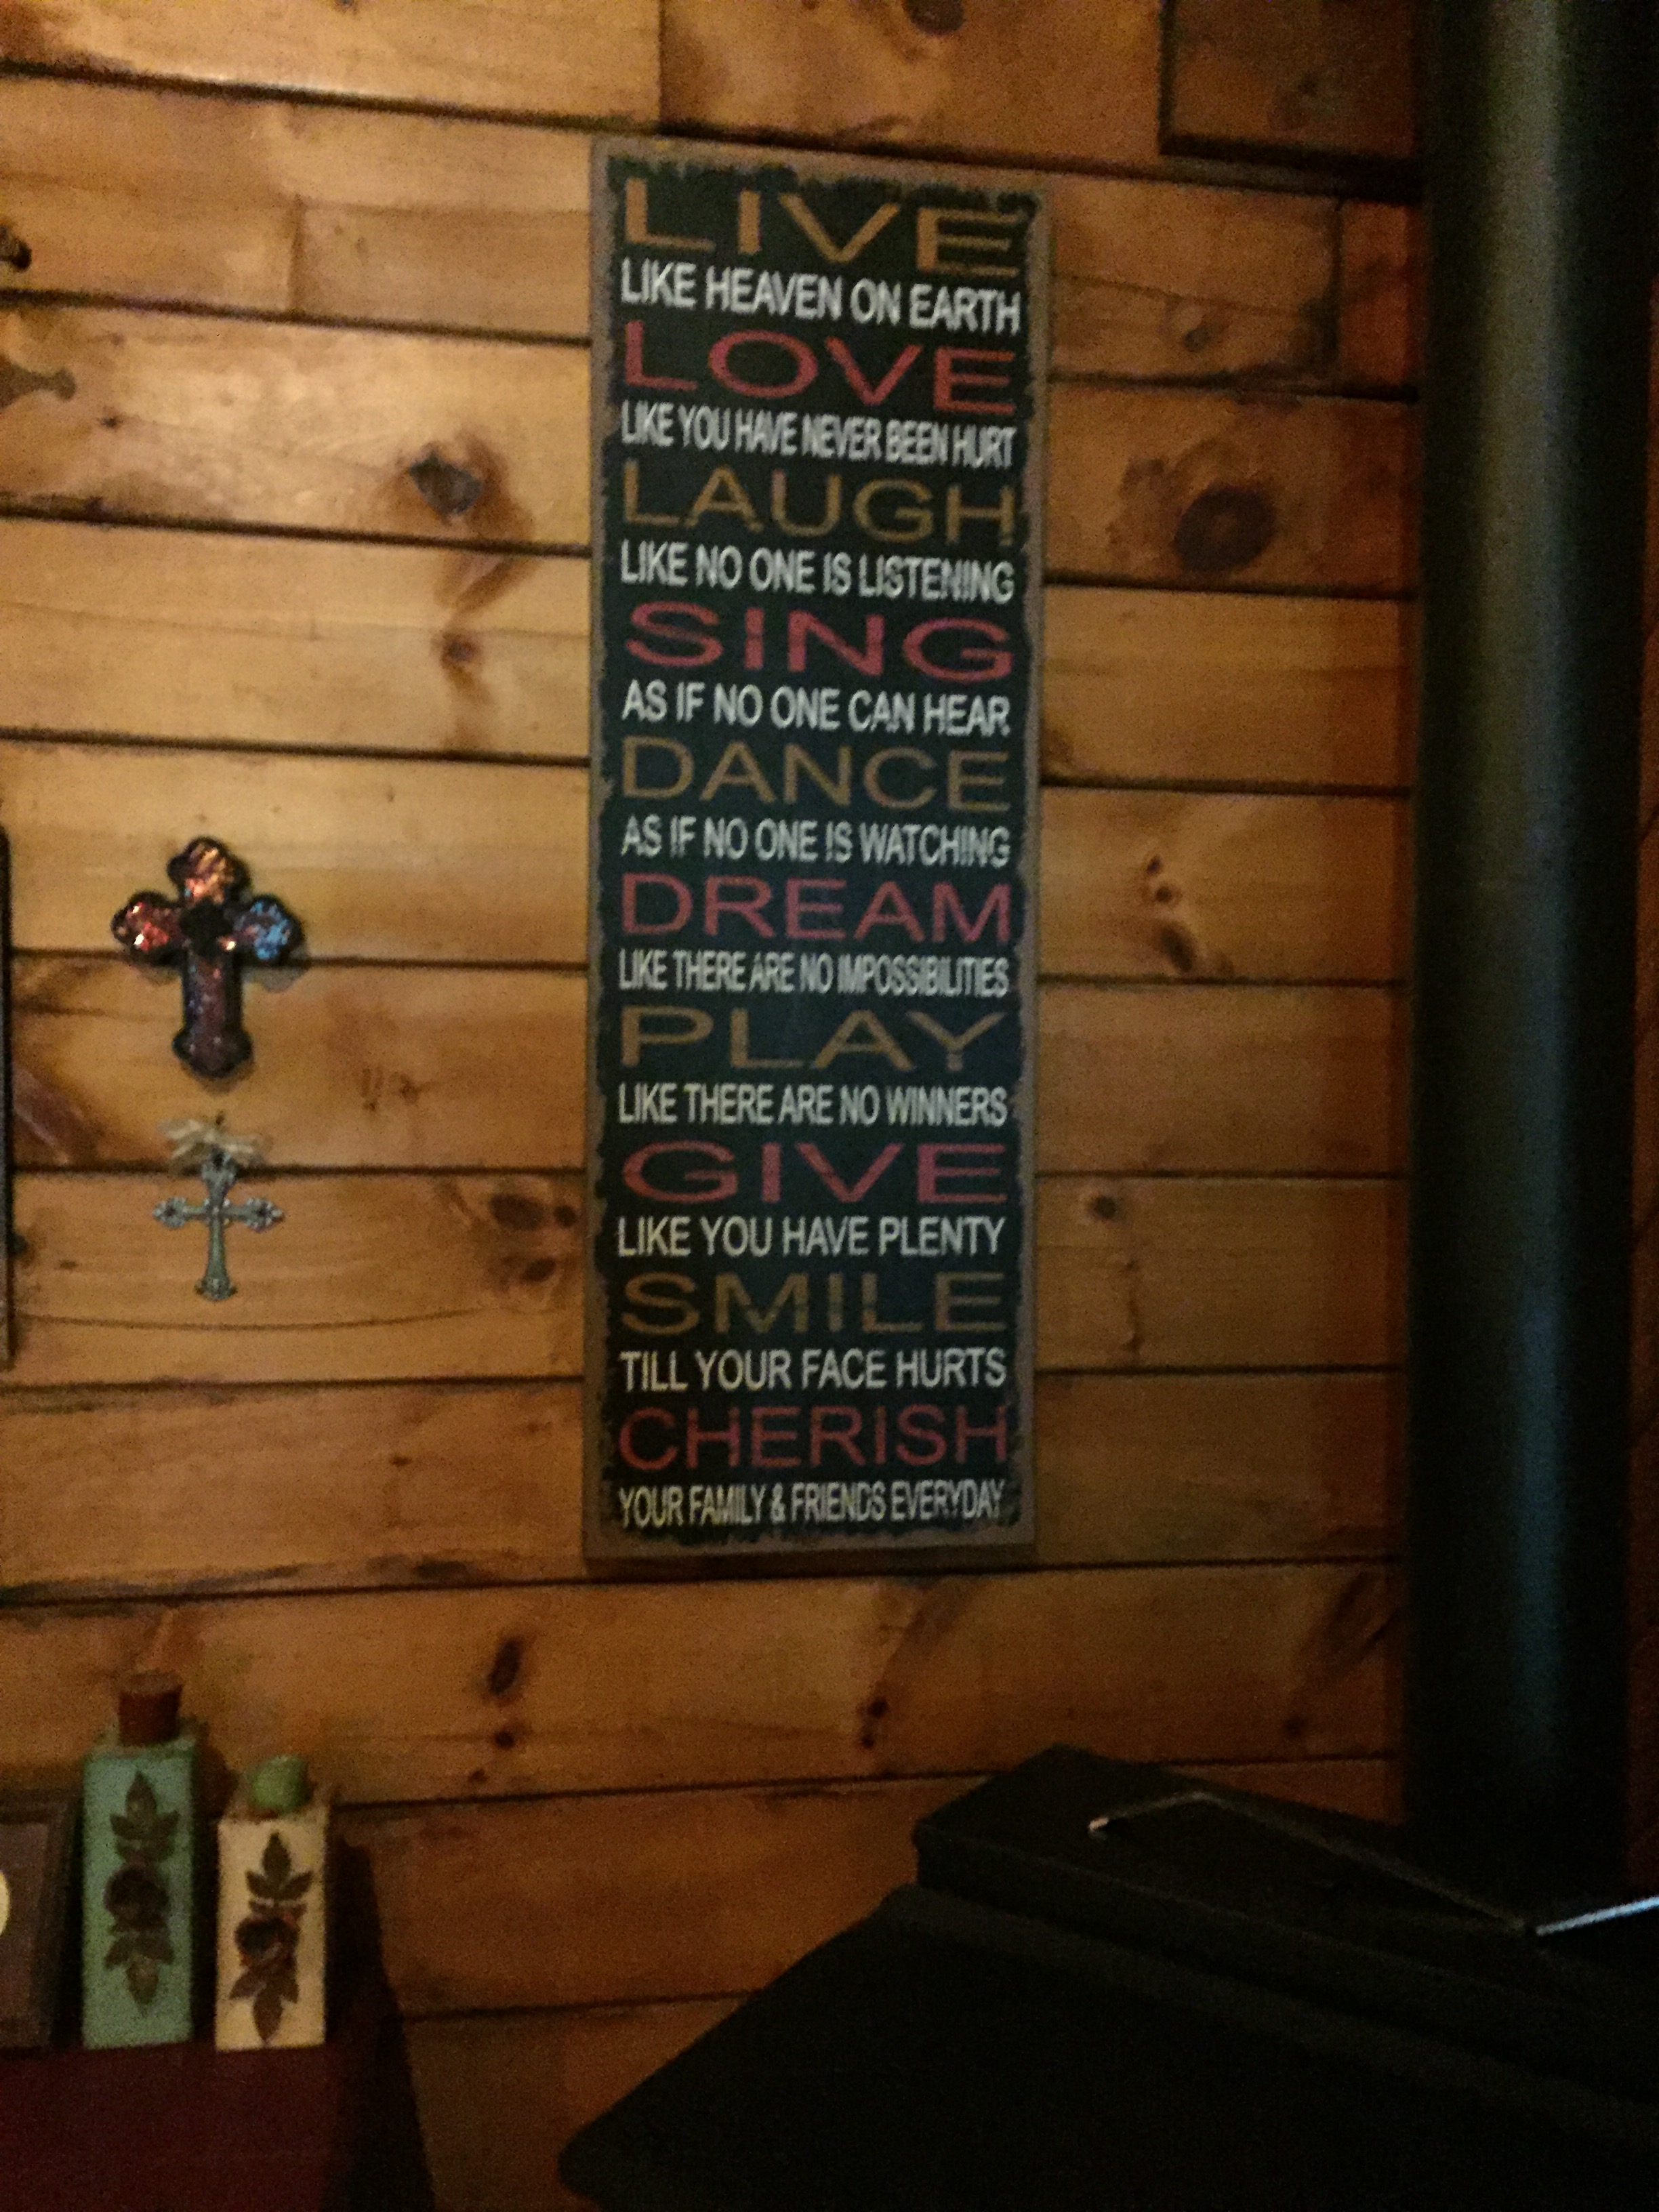 LIVE
LIKE HEAVEN ON EARTH
LOVE
LIKE YOU HAVE NEVER BEEN HURT
LAUGH
LIKE NO ONE IS LISTENING
SING
AS IF NO ONE CAN HEAR
DANCE
AS IF NO ONE IS WATCHING
DREAM
LIKE THERE ARE NO IMPOSSIBILITIES
PLAY
LIKE THERE ARE NO WINNERS
GIVE
LIKE YOU HAVE PLENTY
SMILE
TILL YOUR FACE HURTS
CHERISH
YOUR FAMILY & FRIENDS EVERYDAY